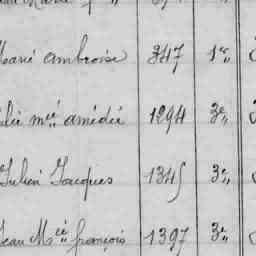 Marie ambroise 347 1re
mie amédée 1294 3e
Julien Jacques 1345 3e
Jean Mie françois 1397 3e